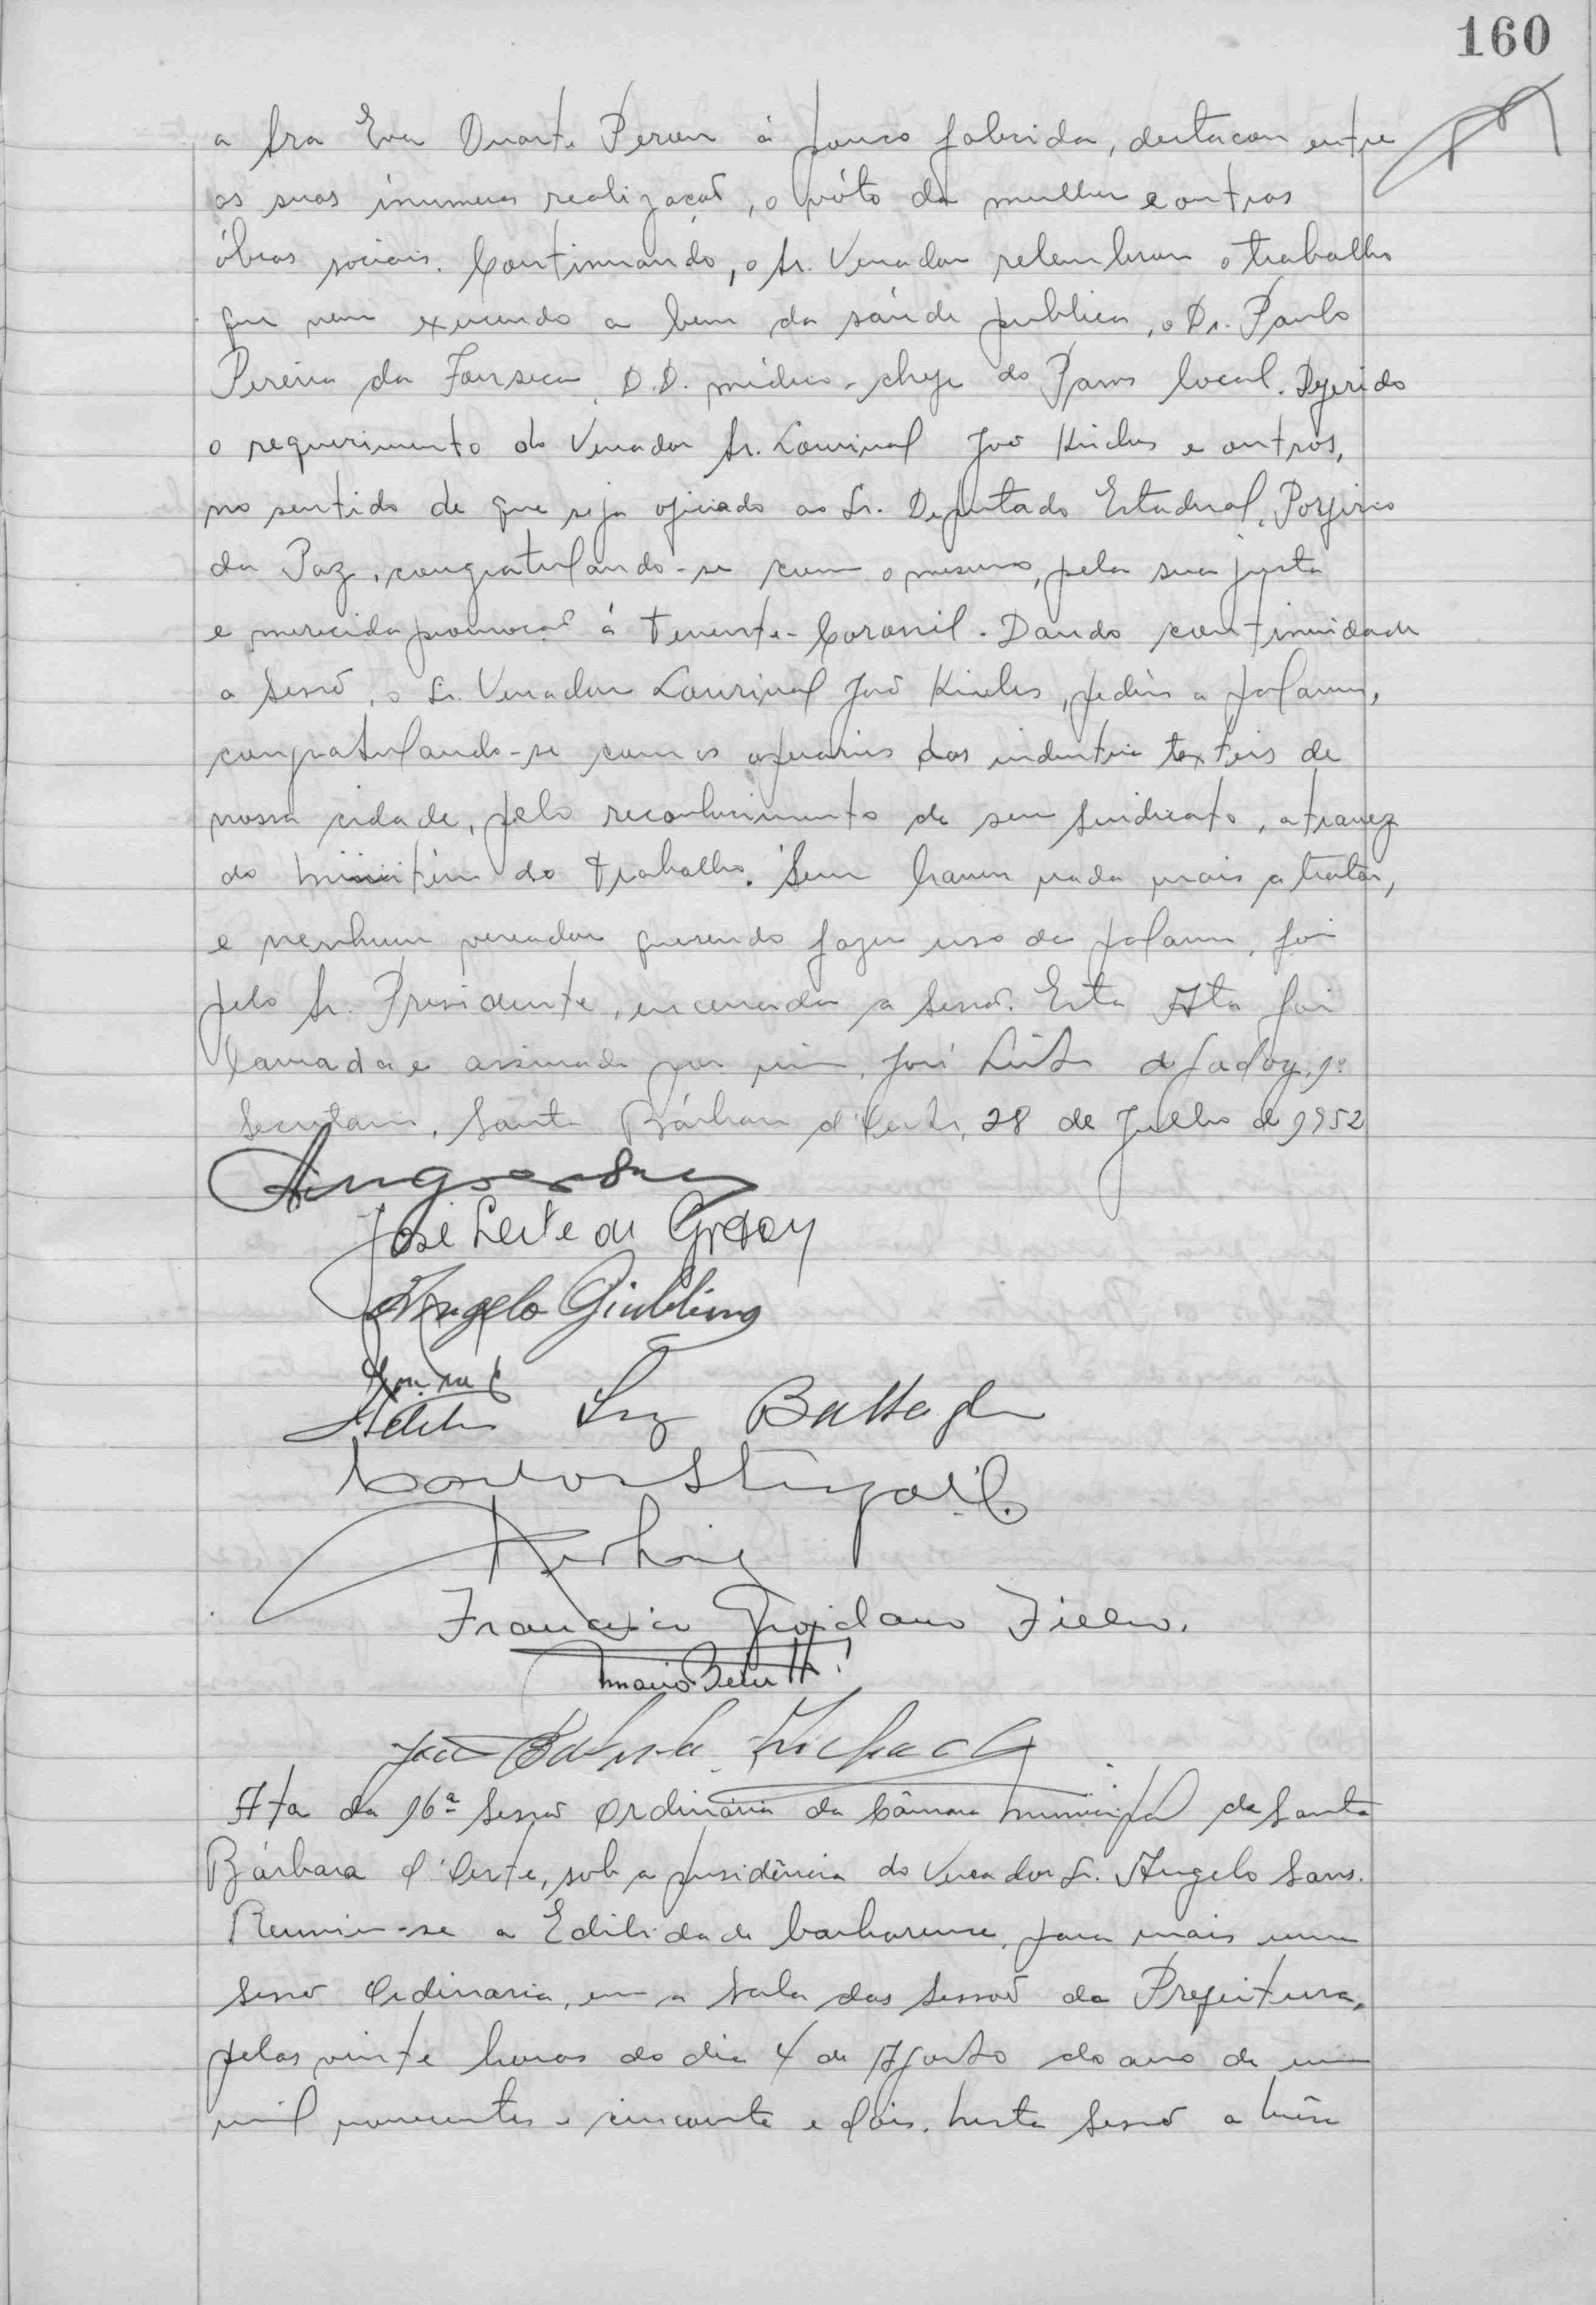 160
a Sra Eva Duarte Peron á pouco falecida, destacou entre
as suas inumeras realizações, o vóto da mulher e outras
óbras sociais. Continuando, o Sr. Vereador relembrou o trabalho
que vem exercendo a bem da saúde publica, o Dr. Paulo
Pereira da Fonseca, D.D. médico-chefe do Pams local. Deferido
o requerimento do Vereador Sr. Lourival João e outros,
no sentido de que seja oficiado ao Sr. Deputado Estadual, Porfirio
da Paz, congratulando-se com o mesmo, pela sua justa
e merecida promoção á Tenente-Coronil. Dando continuidade
a Sessão, o Sr. Vereador Lourival João, pediu a palavra,
congratulando-se com os operarios das industria texteis de
nossa cidade, pelo reconhecimento de seu Sindicato, atravez
do Ministério do Trabalho. Sem haver nada mais a tratar,
e nenhum vereador querendo fazer uso da palavra, foi
pelo Sr. Presidente, encerrada a Sessão. Esta Ata foi
lavrada e assinada por mim, José Leite de Godoy, 1º
Secretario, Santa Bárbara d'Oeste, 28 de Julho de 1952
José Leite de Godoy
Angelo Giubbina
Luz Battagl
Francisco Giordano Filho.
Mario Belu
João Batista
Ata da 16ª Sessão Ordinária da Câmara Municipal de Santa
Bárbara d'Oeste, sob a presidência do Vereador Sr. Angelo Sans.
Reuniu-se a Edilidade barbarense, para mais uma
Sessão Ordinaria, em a Sala das Sessões da Prefeitura,
pelas vinte horas do dia 4 de Agosto do ano de um
mil novecentos e cincoenta e dois. Nesta Sessão a Mêsa